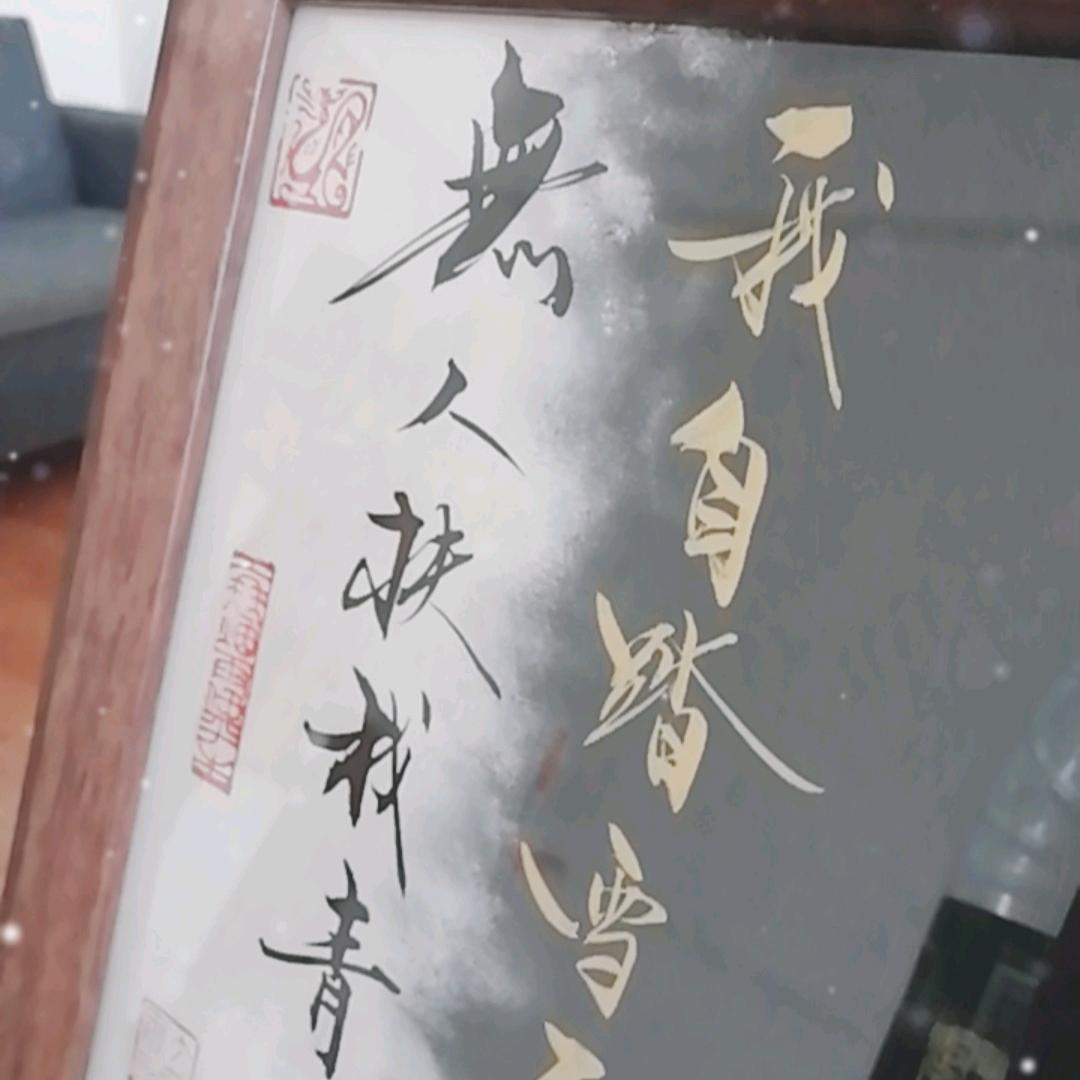 我自踏雪
無人扶我青